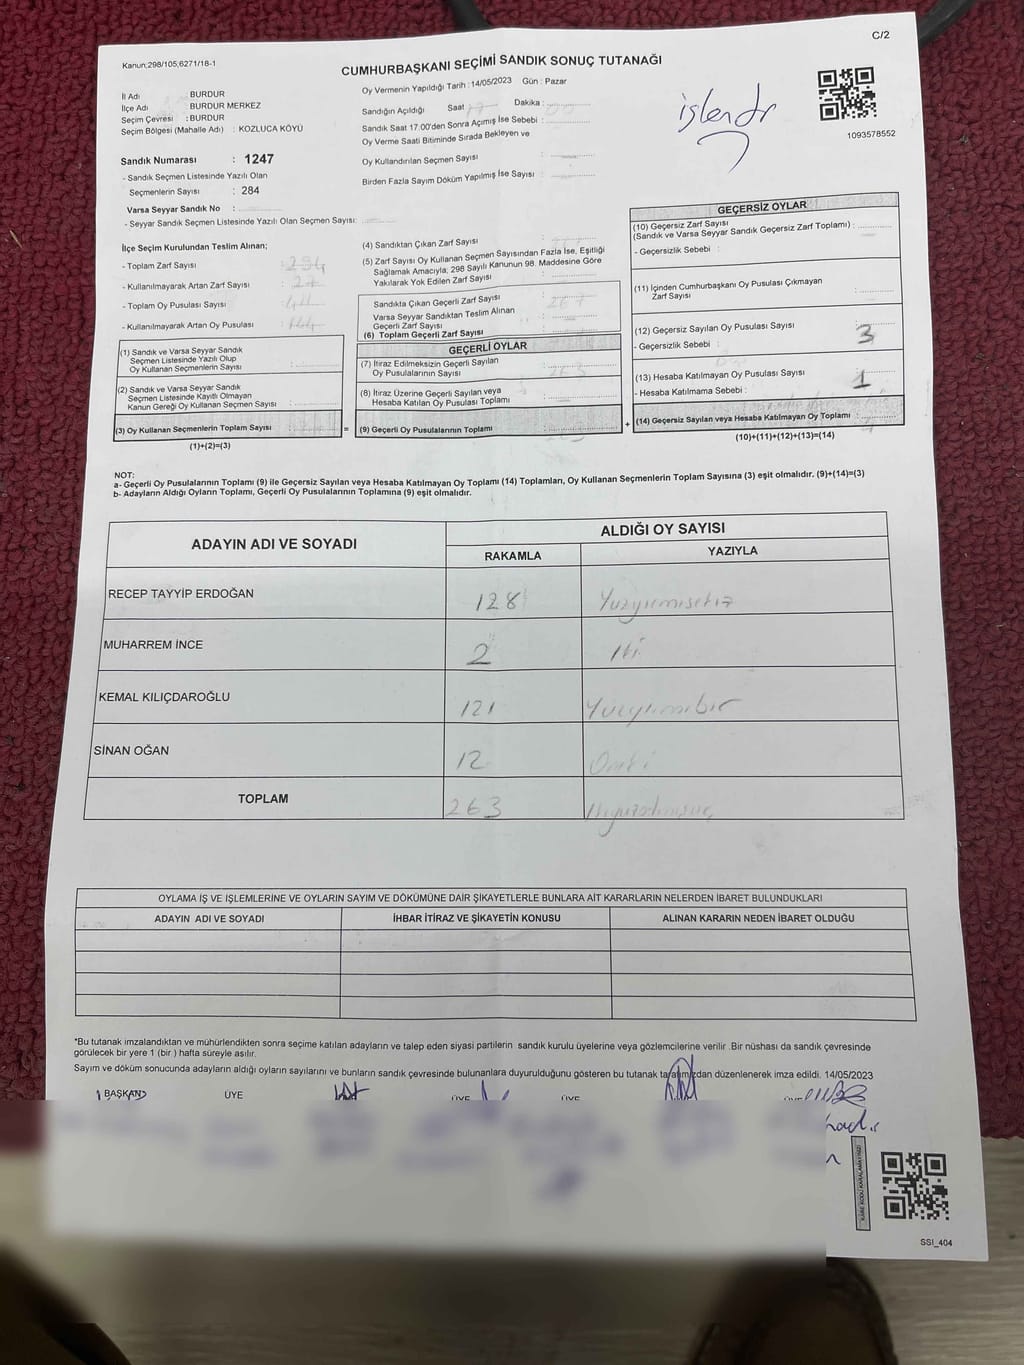 C/2
Kanun;298/105,6271/18-1
CUMHURBAŞKANI SEÇİMİ SANDIK SONUÇ TUTANAĞI
Oy Vermenin Yapıldığı Tarih : 14/05/2023 Gün : Pazar
İl Adı : BURDUR
İlçe Adı : BURDUR MERKEZ
Seçim Çevresi : BURDUR
Seçim Bölgesi (Mahalle Adı) : KOZLUCA KÖYÜ
Sandığın Açıldığı Saat Dakika :
Sandık Saat 17.00'den Sonra Açımış İse Sebebi :
Oy Verme Saati Bitiminde Sırada Bekleyen ve
Oy Kullandırılan Seçmen Sayısı :
Birden Fazla Sayım Döküm Yapılmış İse Sayısı :
işlendi
1093578552
Sandık Numarası : 1247
- Sandık Seçmen Listesinde Yazılı Olan
Seçmenlerin Sayısı : 284
Varsa Seyyar Sandık No :
- Seyyar Sandık Seçmen Listesinde Yazılı Olan Seçmen Sayısı:
İlçe Seçim Kurulundan Teslim Alınan;
- Toplam Zarf Sayısı :
- Kullanılmayarak Artan Zarf Sayısı :
- Toplam Oy Pusulası Sayısı :
- Kullanılmayarak Artan Oy Pusulası :
(1) Sandık ve Varsa Seyyar Sandık
Seçmen Listesinde Yazılı Olup
Oy Kullanan Seçmenlerin Sayısı :
(2) Sandık ve Varsa Seyyar Sandık
Seçmen Listesinde Kayıtlı Olmayan
Kanun Gereği Oy Kullanan Seçmen Sayısı :
(3) Oy Kullanan Seçmenlerin Toplam Sayısı =
(1)+(2)=(3)
(4) Sandıktan Çıkan Zarf Sayısı :
(5) Zarf Sayısı Oy Kullanan Seçmen Sayısından Fazla İse, Eşitliği
Sağlamak Amacıyla; 298 Sayılı Kanunun 98. Maddesine Göre
Yakılarak Yok Edilen Zarf Sayısı :
Sandıkta Çıkan Geçerli Zarf Sayısı : 267
Varsa Seyyar Sandıktan Teslim Alınan
Geçerli Zarf Sayısı :
(6) Toplam Geçerli Zarf Sayısı :
GEÇERLİ OYLAR
(7) İtiraz Edilmeksizin Geçerli Sayılan
Oy Pusulalarının Sayısı : 263
(8) İtiraz Üzerine Geçerli Sayılan veya
Hesaba Katılan Oy Pusulası Toplamı :
(9) Geçerli Oy Pusulalarının Toplamı : 263 +
GEÇERSİZ OYLAR
(10) Geçersiz Zarf Sayısı
(Sandık ve Varsa Seyyar Sandık Geçersiz Zarf Toplamı) :
- Geçersizlik Sebebi :
(11) İçinden Cumhurbaşkanı Oy Pusulası Çıkmayan
Zarf Sayısı :
(12) Geçersiz Sayılan Oy Pusulası Sayısı : 3
- Geçersizlik Sebebi :
(13) Hesaba Katılmayan Oy Pusulası Sayısı : 1
- Hesaba Katılmama Sebebi :
(14) Geçersiz Sayılan veya Hesaba Katılmayan Oy Toplamı : 4
(10)+(11)+(12)+(13)=(14)
NOT:
a- Geçerli Oy Pusulalarının Toplamı (9) ile Geçersiz Sayılan veya Hesaba Katılmayan Oy Toplamı (14) Toplamları, Oy Kullanan Seçmenlerin Toplam Sayısına (3) eşit olmalıdır. (9)+(14)=(3)
b- Adayların Aldığı Oyların Toplamı, Geçerli Oy Pusulalarının Toplamına (9) eşit olmalıdır.
ADAYIN ADI VE SOYADI ALDIĞI OY SAYISI
RAKAMLA YAZIYLA
RECEP TAYYİP ERDOĞAN 128 Yüzyirmisekiz
MUHARREM İNCE 2 İki
KEMAL KILIÇDAROĞLU 121 Yüzyirmibir
SİNAN OĞAN 12 Oniki
TOPLAM 263 İkiyüzaltmışüç
OYLAMA İŞ VE İŞLEMLERİNE VE OYLARIN SAYIM VE DÖKÜMÜNE DAİR ŞİKAYETLERLE BUNLARA AİT KARARLARIN NELERDEN İBARET BULUNDUKLARI
ADAYIN ADI VE SOYADI İHBAR İTİRAZ VE ŞİKAYETİN KONUSU ALINAN KARARIN NEDEN İBARET OLDUĞU
*Bu tutanak imzalandıktan ve mühürlendikten sonra seçime katılan adayların ve talep eden siyasi partilerin sandık kurulu üyelerine veya gözlemcilerine verilir .Bir nüshası da sandık çevresinde
görülecek bir yere 1 (bir ) hafta süreyle asılır.
Sayım ve döküm sonucunda adayların aldığı oyların sayılarını ve bunların sandık çevresinde bulunanlara duyurulduğunu gösteren bu tutanak tarafımızdan düzenlenerek imza edildi. 14/05/2023
BAŞKAN ÜYE ÜYE ÜYE
KARE KODU KARALAMAYINIZ!
SSI_404